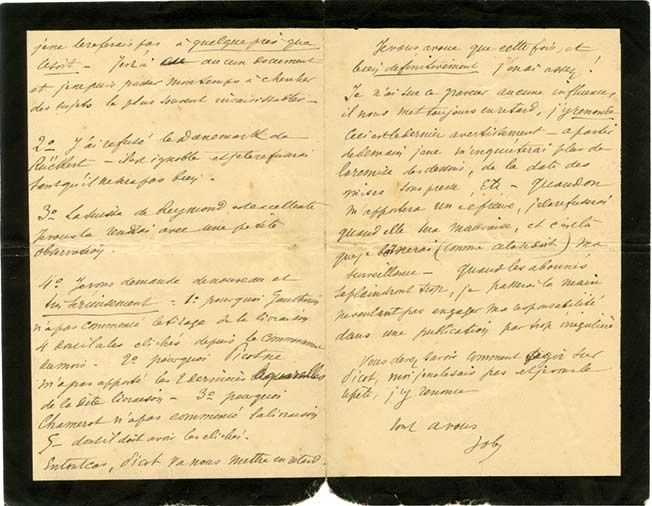 je ne le referais pas à quelque prix que
ce soit – Job a aucun document
et je ne puis passer mon temps à chercher
des sujets le plus souvent introuvables –
2º J'ai refusé le Danemark de
Rückert – c'est ignoble et je le refuserai
tant qu'il ne sera pas bien.
3º La Suisse de Reymond est excellente
Je vous la rendrai avec une petite
observation.
4º Je vous demande de nouveau et
très sérieusement – 1º pourquoi
n'a pas commencé le tirage de la livraison
4 dont il a les clichés depuis le commencement
du mois – 2º pourquoi Picot ne
m'a pas apporté les 2 dernières aquarelles
de la dite livraison – 3º pourquoi
Chamerot n'a pas commencé la livraison
5 – dont il doit avoir les clichés.
En tout cas, Picot va nous mettre en retard.
Je vous avoue que cette fois, et
bien définitivement j'en ai assez !
Je n'ai sur ce graveur aucune influence,
il nous met toujours en retard, j'y renonce
Ceci est le dernier avertissement – à partir
de demain je ne m'inquiéterai plus de
la remise des dessins, de la date des
mises sous presse, etc – Quand on
m'apportera une épreuve, je la refuserai
quand elle sera mauvaise, et c'est là
que je bornerai (comme cela se doit) ma
surveillance – Quand les abonnés
se plaindront, je passerai la main
ne voulant pas engager ma responsabilité
dans une publication par trop irrégulière
Vous devez savoir comment agir sur
Picot, moi je ne le sais pas et je vous le
répète, j'y renonce
Tout à vous
Job